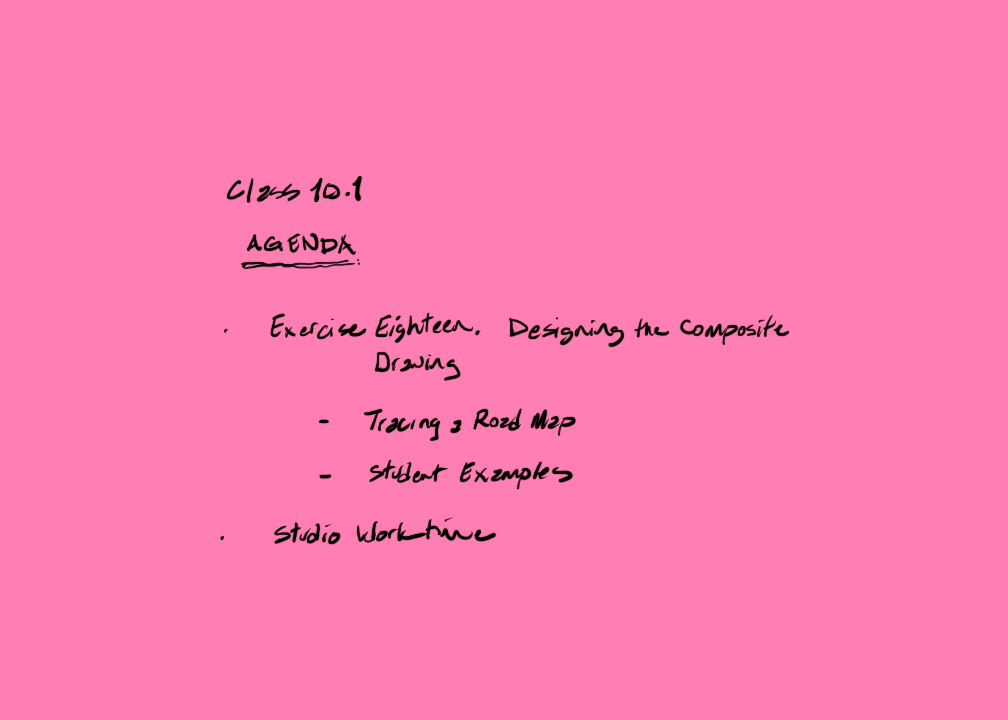 Class 10.1
AGENDA
· Exercise Eighteen. Designing the Composite
Drawing
- Tracing a Road Map
- Student Examples
· Studio Worktime